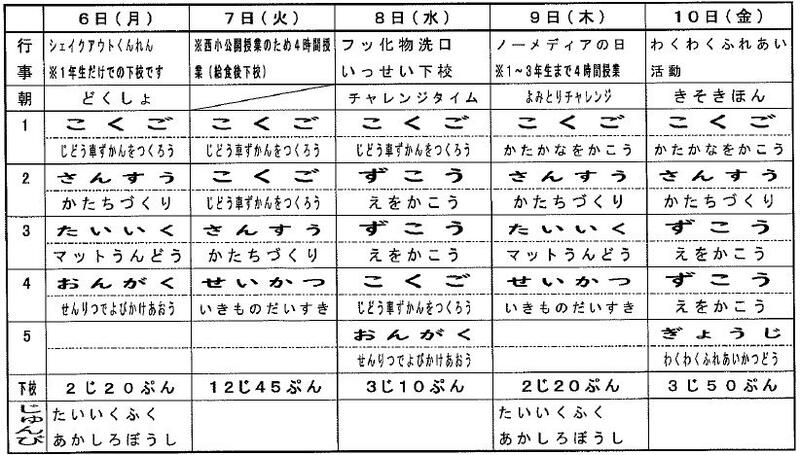 ６日（月） ７日（火） ８日（水） ９日（木） １０日（金）
行事 シェイクアウトくんれん ※西小公開授業のため４時間授 フッ化物洗口 ノーメディアの日 わくわくふれあい
※１年生だけでの下校です 業（給食後下校） いっせい下校 ※１～３年生まで４時間授業 活動
朝 どくしょ チャレンジタイム よみとりチャレンジ きそきほん
1 こくご こくご こくご こくご こくご
じどう車ずかんをつくろう じどう車ずかんをつくろう じどう車ずかんをつくろう かたかなをかこう かたかなをかこう
2 さんすう こくご ずこう さんすう さんすう
かたちづくり じどう車ずかんをつくろう えをかこう かたちづくり かたちづくり
3 たいいく さんすう ずこう たいいく ずこう
マットうんどう かたちづくり えをかこう マットうんどう えをかこう
4 おんがく せいかつ こくご せいかつ ずこう
せんりつでよびかけあおう いきものだいすき じどう車ずかんをつくろう いきものだいすき えをかこう
5 おんがく ぎょうじ
せんりつでよびかけあおう わくわくふれあいかつどう
下校 ２じ２０ぷん １２じ４５ぷん ３じ１０ぷん ２じ２０ぷん ３じ５０ぷん
じゅんび たいいくふく たいいくふく
あかしろぼうし あかしろぼうし